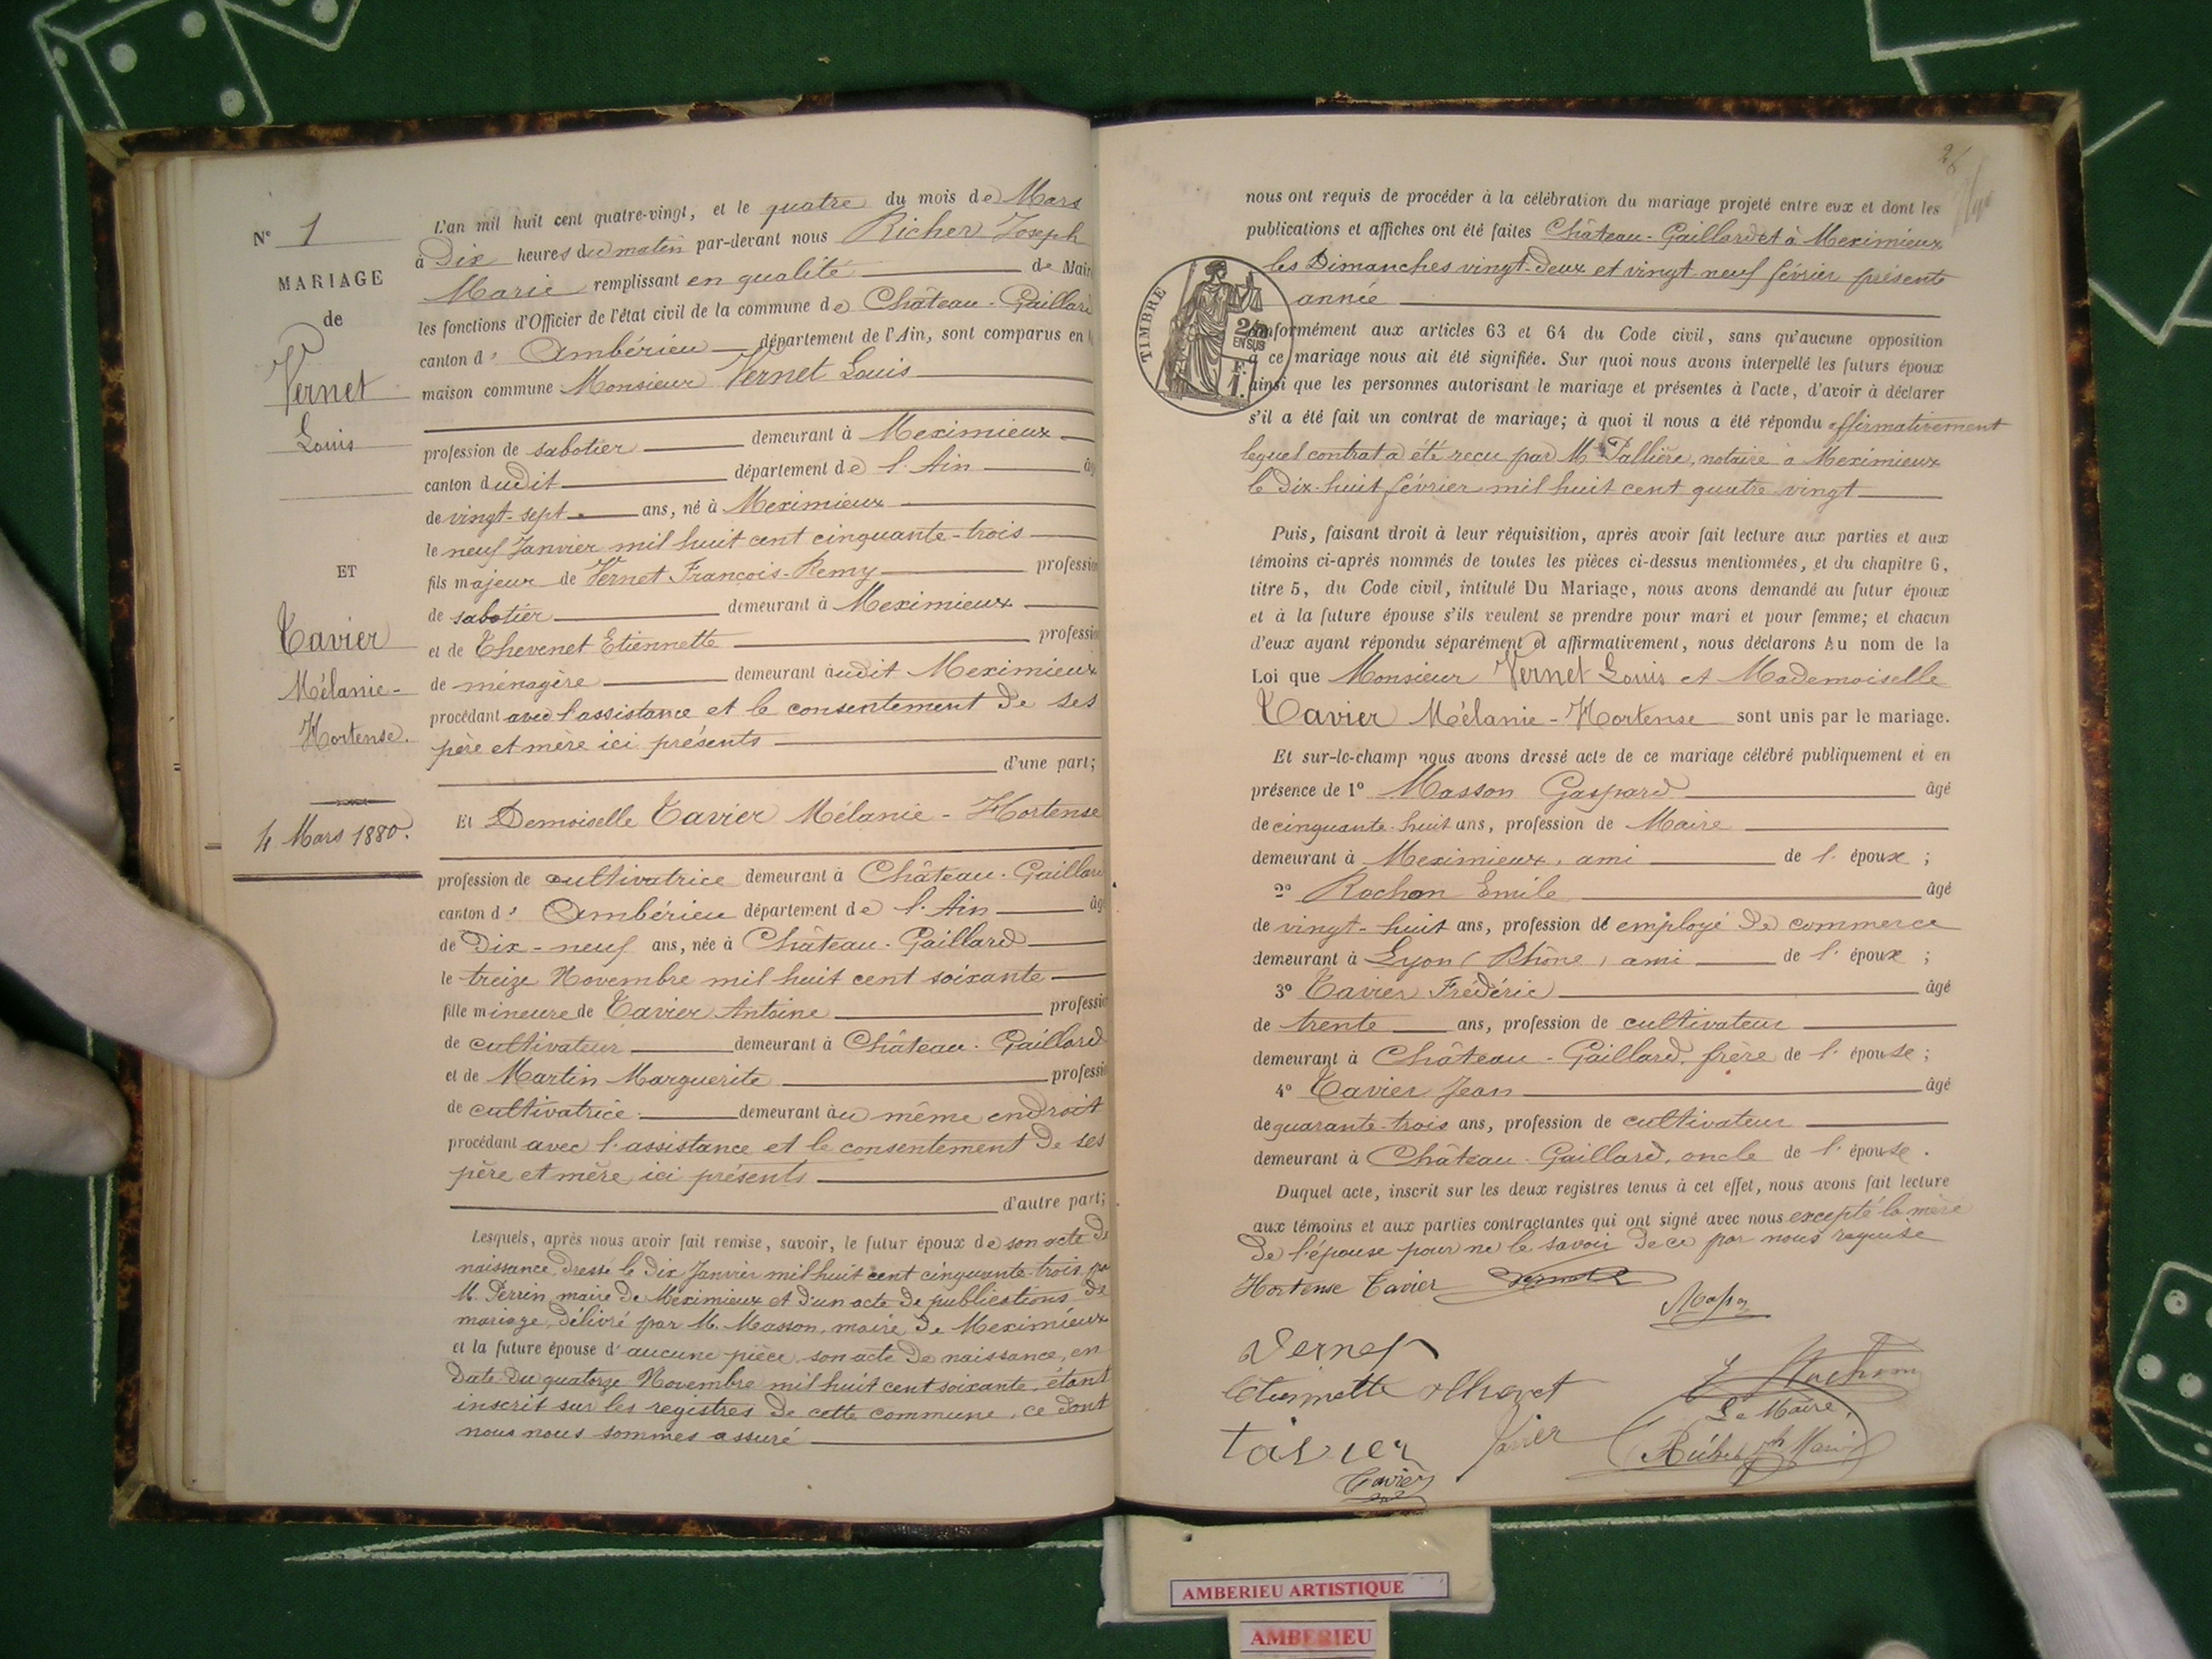 N° 1
MARIAGE
de
Vernet
Louis
ET
Tavier
Mélanie-
Hortense.
4 Mars 1880.
L'an mil huit cent quatre-vingt, et le quatre du mois de Mars
à Dix heures du matin par-devant nous Richer Joseph
Marie remplissant en qualité de Mair
les fonctions d'Officier de l'état civil de la commune de Château-Gaillard
canton d' Ambérieu département de l'Ain, sont comparus en
maison commune Monsieur Vernet Louis
profession de sabotier demeurant à Meximieux
canton dudit département de l'Ain âg
de vingt-sept ans, né à Meximieux
le neuf Janvier mil huit cent cinquante-trois
fils majeur de Vernet François-Remy profession
de sabotier demeurant à Meximieux
et de Thevenet Etiennette profession
de ménagère demeurant audit Meximieux
procédant avec l'assistance et le consentement de ses
père et mère ici présents
d'une part;
Et Demoiselle Tavier Mélanie-Hortense
profession de cultivatrice demeurant à Château-Gaillard
canton d' Ambérieu département de l'Ain âg
de Dix-neuf ans, née à Château-Gaillard
le treize Novembre mil huit cent soixante
fille mineure de Tavier Antoine professio
de cultivateur demeurant à Château-Gaillard
et de Martin Marguerite professi
de cultivatrice demeurant au même endroit
procédant avec l'assistance et le consentement de ses
père et mère ici présents
d'autre part;
Lesquels, après nous avoir fait remise, savoir, le futur époux de son acte de
naissance dressé le dix Janvier mil huit cent cinquante-trois, pa
M. Perrin, maire de Meximieux et d'un acte de publications de
mariage, délivré par M. Masson, maire de Meximieux
et la future épouse d'aucune pièce, son acte de naissance, en
date du quatorze Novembre mil huit cent soixante, étant
inscrit sur les registres de cette commune, ce dont
nous nous sommes assuré
26
nous ont requis de procéder à la célébration du mariage projeté entre eux et dont les
publications et affiches ont été faites Château-Gaillard et à Meximieux
les Dimanches vingt-deux et vingt-neuf février présente
année
TIMBRE
2/10 EN SUS
F. 1.
conformément aux articles 63 et 64 du Code civil, sans qu'aucune opposition
à ce mariage nous ait été signifiée. Sur quoi nous avons interpellé les futurs époux
ainsi que les personnes autorisant le mariage et présentes à l'acte, d'avoir à déclarer
s'il a été fait un contrat de mariage; à quoi il nous a été répondu affirmativement
lequel contrat a été reçu par M° Pallière, notaire à Meximieux
le Dix-huit février mil huit cent quatre-vingt
Puis, faisant droit à leur réquisition, après avoir fait lecture aux parties et aux
témoins ci-après nommés de toutes les pièces ci-dessus mentionnées, et du chapitre 6,
titre 5, du Code civil, intitulé Du Mariage, nous avons demandé au futur époux
et à la future épouse s'ils veulent se prendre pour mari et pour femme; et chacun
d'eux ayant répondu séparément et affirmativement, nous déclarons Au nom de la
Loi que Monsieur Vernet Louis et Mademoiselle
Tavier Mélanie-Hortense sont unis par le mariage.
Et sur-le-champ nous avons dressé acte de ce mariage célébré publiquement et en
présence de 1° Masson Gaspard âgé
de cinquante-huit ans, profession de Maire
demeurant à Meximieux, ami de l'époux ;
2° Rochon Emile âgé
de vingt-huit ans, profession de employé de commerce
demeurant à Lyon (Rhône) ami de l'époux ;
3° Tavier Frédéric âgé
de trente ans, profession de cultivateur
demeurant à Château-Gaillard, frère de l'épouse ;
4° Tavier Jean âgé
de quarante-trois ans, profession de cultivateur
demeurant à Château-Gaillard, oncle de l'épouse.
Duquel acte, inscrit sur les deux registres tenus à cet effet, nous avons fait lecture
aux témoins et aux parties contractantes qui ont signé avec nous excepté la mère
de l'épouse pour ne le savoir de ce par nous requise
Hortense Tavier Vernet
Masson
Vernet
Etiennette
Rochon
Le Maire,
Tavier Tavier
Richer Jph Marie
Tavier
AMBERIEU ARTISTIQUE
AMBERIEU